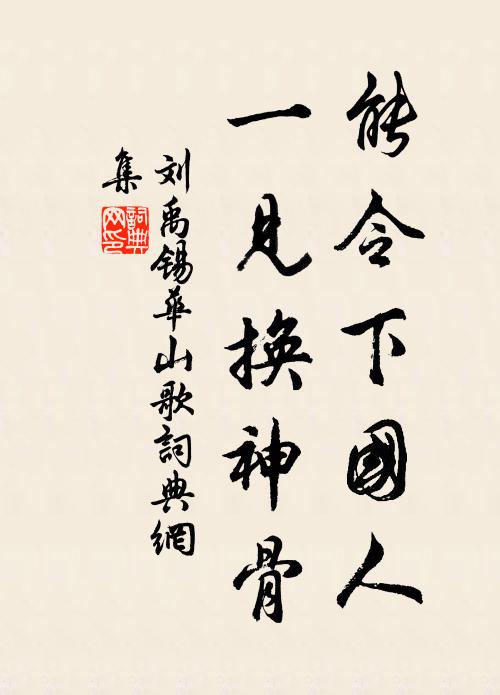 能令下國人
一見換神骨
刘禹锡華山歌詞典網
集
詞典网印